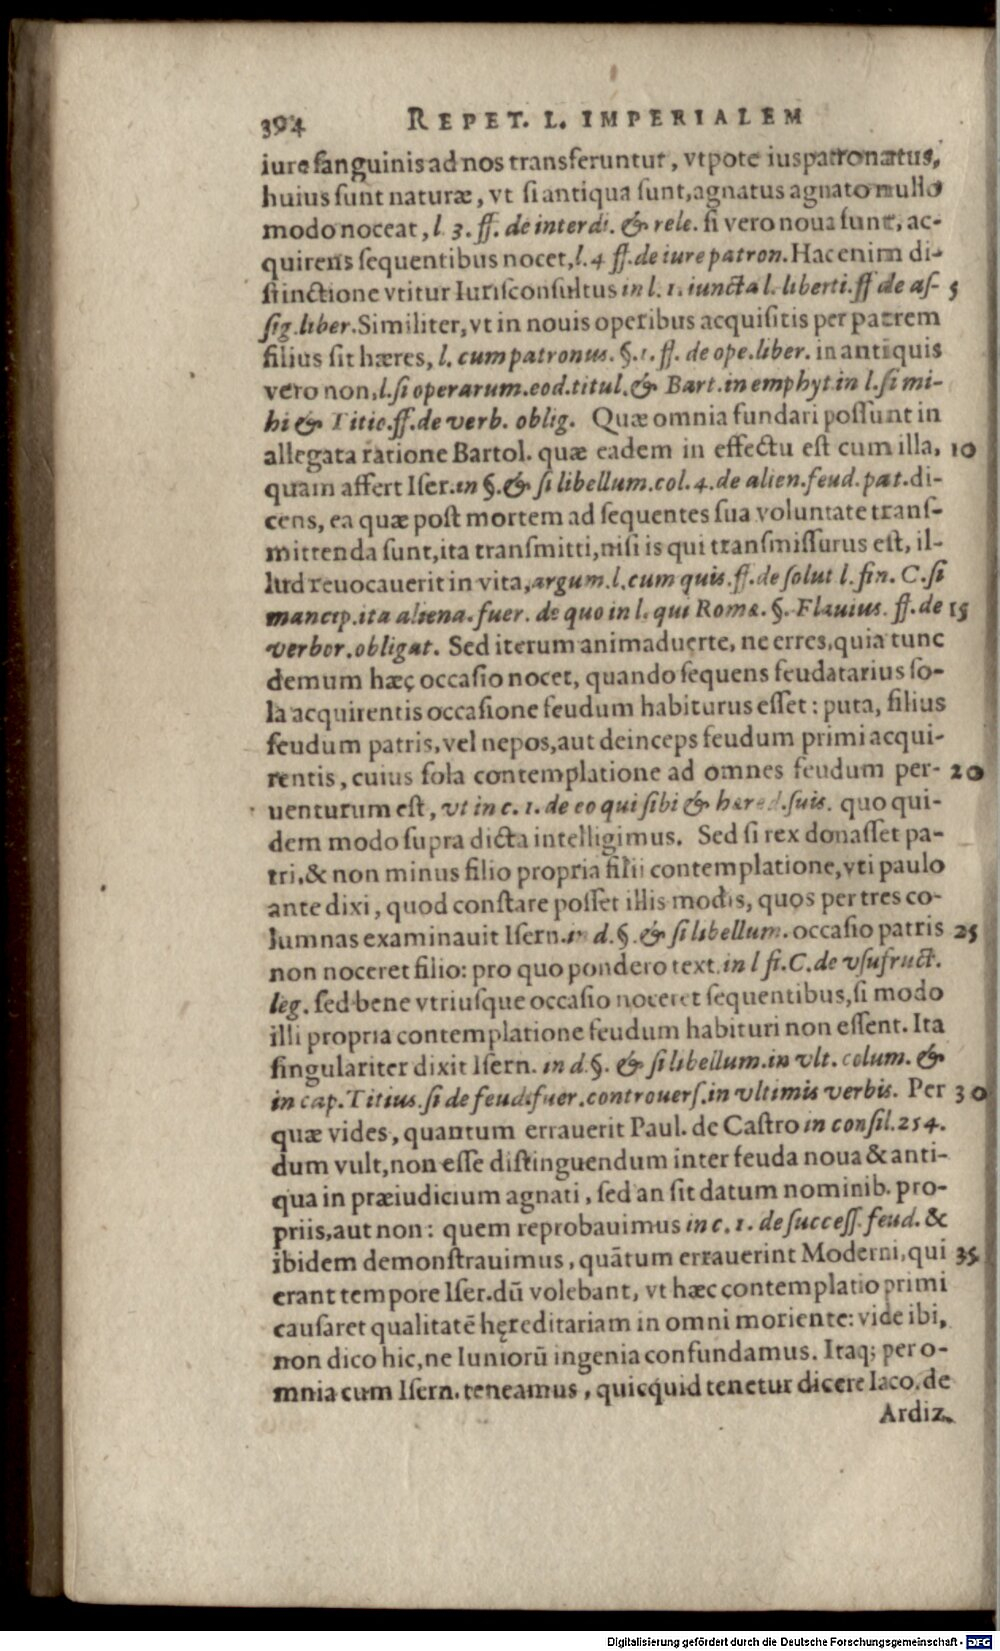 394 REPET. L. IMPERIALEM
iure ſanguinis ad nos transferuntur, vtpote iuspatronatus,
huius ſunt naturæ, vt ſi antiqua ſunt, agnatus agnato nullo
modo noceat, l. 3. ff. de interdi. & rele. ſi vero noua ſunt, ac-
quirens ſequentibus nocet, l. 4 ff. de iure patron. Hac enim di-
ſtinctione vtitur Iuriſconſultus in l. 1. iuncta l. liberti. ff de aſ- 5
ſig. liber. Similiter, vt in nouis operibus acquiſitis per patrem
filius ſit hæres, l. cum patronus. §. 1. ff. de ope. liber. in antiquis
vero non, l. ſi operarum. eod. titul. & Bart. in emphyt. in l. ſi mi-
hi & Titio. ff. de verb. oblig. Quæ omnia fundari poſſunt in
allegata ratione Bartol. quæ eadem in effectu eſt cum illa, 10
quam affert Iſer. in §. & ſi libellum. col. 4. de alien. feud. pat. di-
cens, ea quæ poſt mortem ad ſequentes ſua voluntate tranſ-
mittenda ſunt, ita tranſmitti, niſi is qui tranſmiſſurus eſt, il-
lud reuocauerit in vita, argum. l. cum quis. ff. de ſolut l. fin. C. ſi
mancip. ita aliena. fuer. de quo in l. qui Romæ. §. Flauius. ff. de 15
verbor. obligat. Sed iterum animaduerte, ne erres, quia tunc
demum hæc occaſio nocet, quando ſequens feudatarius ſo-
la acquirentis occaſione feudum habiturus eſſet: puta, filius
feudum patris, vel nepos, aut deinceps feudum primi acqui-
rentis, cuius ſola contemplatione ad omnes feudum per- 20
uenturum eſt, vt in c. 1. de eo qui ſibi & hered. ſuis. quo qui-
dem modo ſupra dicta intelligimus. Sed ſi rex donaſſet pa-
tri, & non minus filio propria filii contemplatione, vti paulo
ante dixi, quod conſtare poſſet illis modis, quos per tres co-
lumnas examinauit Iſern. in d. §. & ſi libellum. occaſio patris 25
non noceret filio: pro quo pondero text. in l fi. C. de vſufruct.
leg. ſed bene vtriuſque occaſio noceret ſequentibus, ſi modo
illi propria contemplatione feudum habituri non eſſent. Ita
ſingulariter dixit Iſern. in d. §. & ſi libellum. in vlt. colum. &
in cap. Titius. ſi de feud. fuer. controuerſ. in vltimis verbis. Per 30
quæ vides, quantum errauerit Paul. de Caſtro in conſil. 254.
dum vult, non eſſe diſtinguendum inter feuda noua & anti-
qua in præiudicium agnati, ſed an ſit datum nominib. pro-
priis, aut non: quem reprobauimus in c. 1. de ſucceſſ. feud. &
ibidem demonſtrauimus, quãtum errauerint Moderni, qui 35
erant tempore Iſer. dũ volebant, vt hæc contemplatio primi
cauſaret qualitatẽ hęreditariam in omni moriente: vide ibi,
non dico hic, ne Iuniorũ ingenia confundamus. Itaq; per o-
mnia cum Iſern. teneamus, quicquid tenetur dicere Iaco. de
Ardiz.
Digitalisierung gefördert durch die Deutsche Forschungsgemeinschaft - DFG